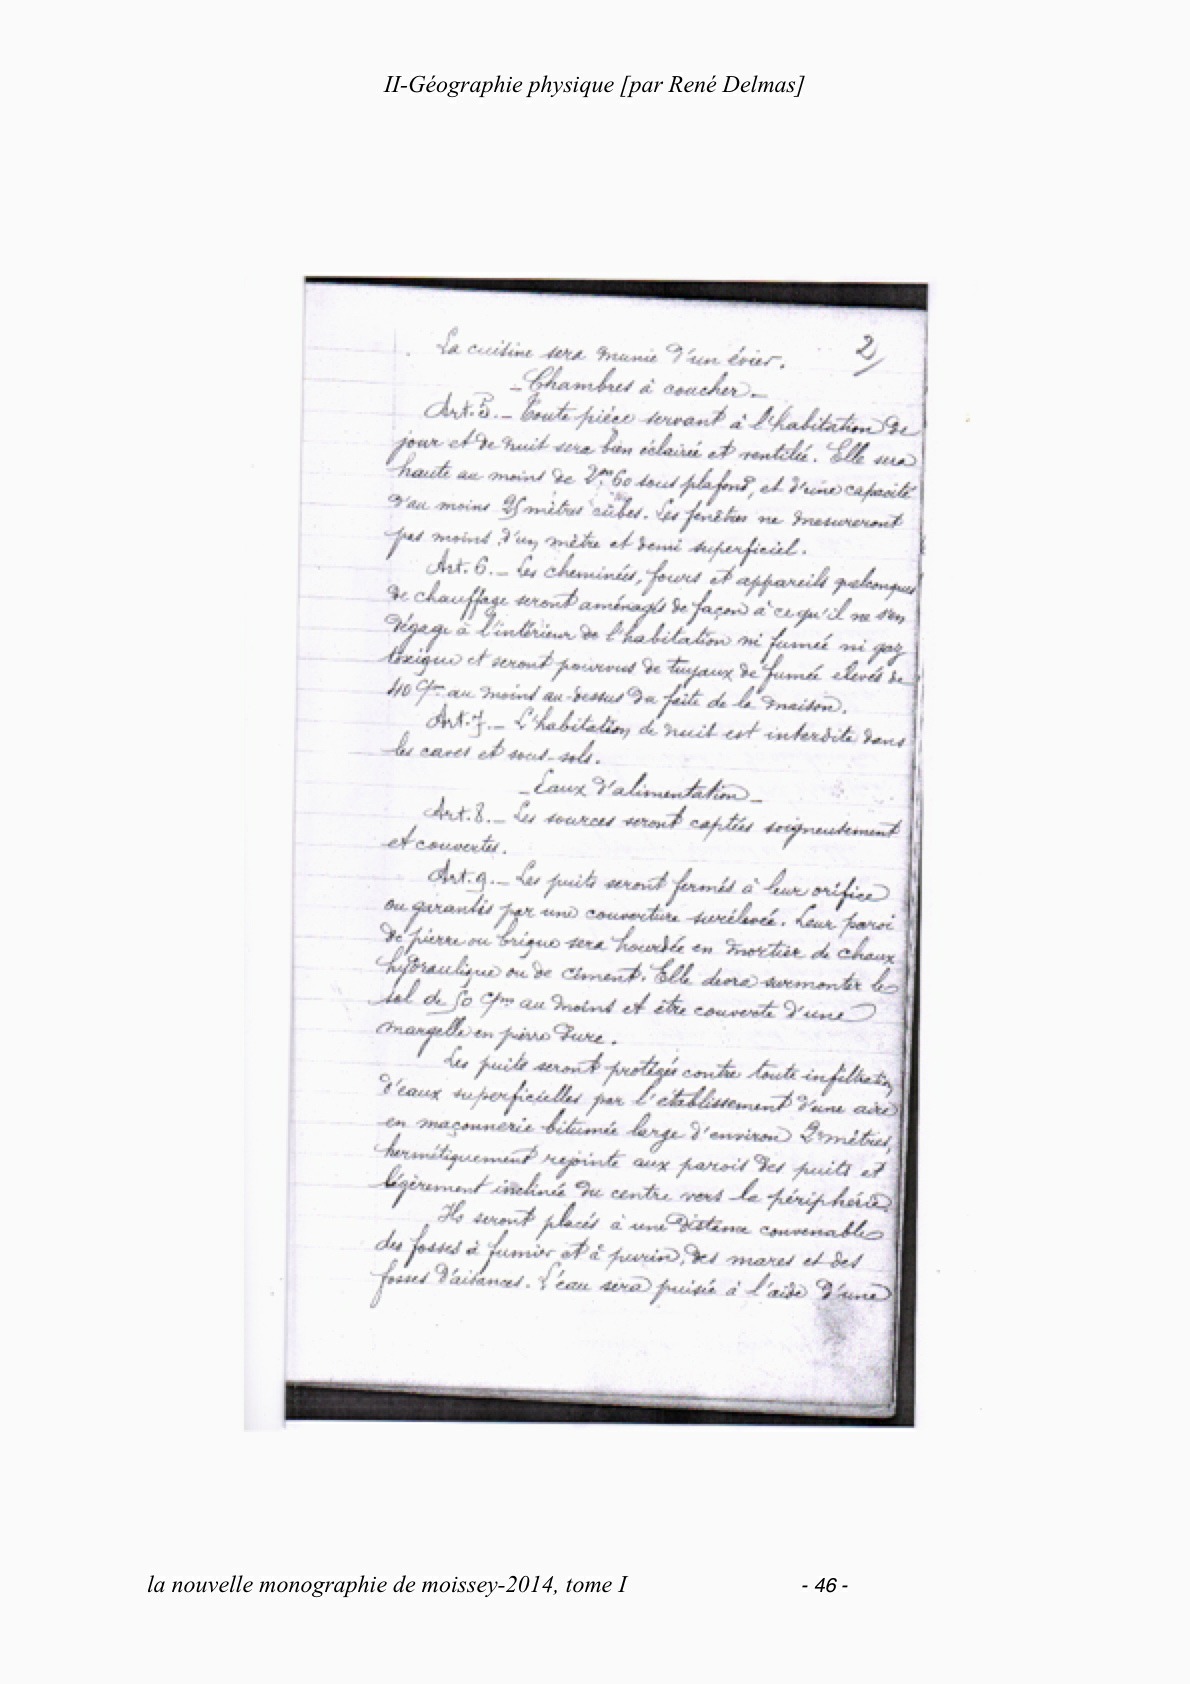 II-Géographie physique [par René Delmas]
2
La cuisine sera munie d'un évier.
- Chambres à coucher -
Art. 5. - Toute pièce servant à l'habitation de
jour et de nuit sera bien éclairée et ventilée. Elle sera
haute au moins de 2m.60 sous plafond, et d'une capacité
d'au moins 25 mètres cubes. Les fenêtres ne mesureront
pas moins d'un mètre et demi superficiel.
Art. 6. - Les cheminées, fours et appareils quelconques
de chauffage seront aménagés de façon à ce qu'il ne s'en
dégage à l'intérieur de l'habitation ni fumée ni gaz
toxique et seront pourvus de tuyaux de fumée élevés de
40 c/m au moins au-dessus du faîte de la maison.
Art. 7. - L'habitation de nuit est interdite dans
les caves et sous-sols.
- Eaux d'alimentation -
Art. 8. - Les sources seront captées soigneusement
et couvertes.
Art. 9. - Les puits seront fermés à leur orifice
ou garantis par une couverture surélevée. Leur paroi
de pierre ou brique sera hourdée en mortier de chaux
hydraulique ou de ciment. Elle devra surmonter le
sol de 50 c/m au moins et être couverte d'une
margelle en pierre dure.
Les puits seront protégés contre toute infiltration
d'eaux superficielles par l'établissement d'une aire
en maçonnerie bitumée large d'environ 2 mètres,
hermétiquement rejointe aux parois des puits et
légèrement inclinée du centre vers la périphérie.
Ils seront placés à une distance convenable
des fosses à fumier et à purin, des mares et des
fosses d'aisances. L'eau sera puisée à l'aide d'une
la nouvelle monographie de moissey-2014, tome I
- 46 -